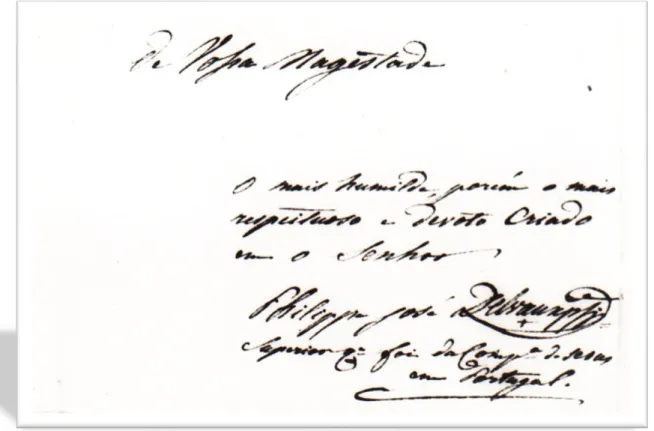 de Vossa Magestade
O mais humilde, porém o mais
respeituoso e devoto Criado
em o Senhor
Philippe José Delvaux
Superior q.^e foi da Comp.^a de Jesus
em Portugal.